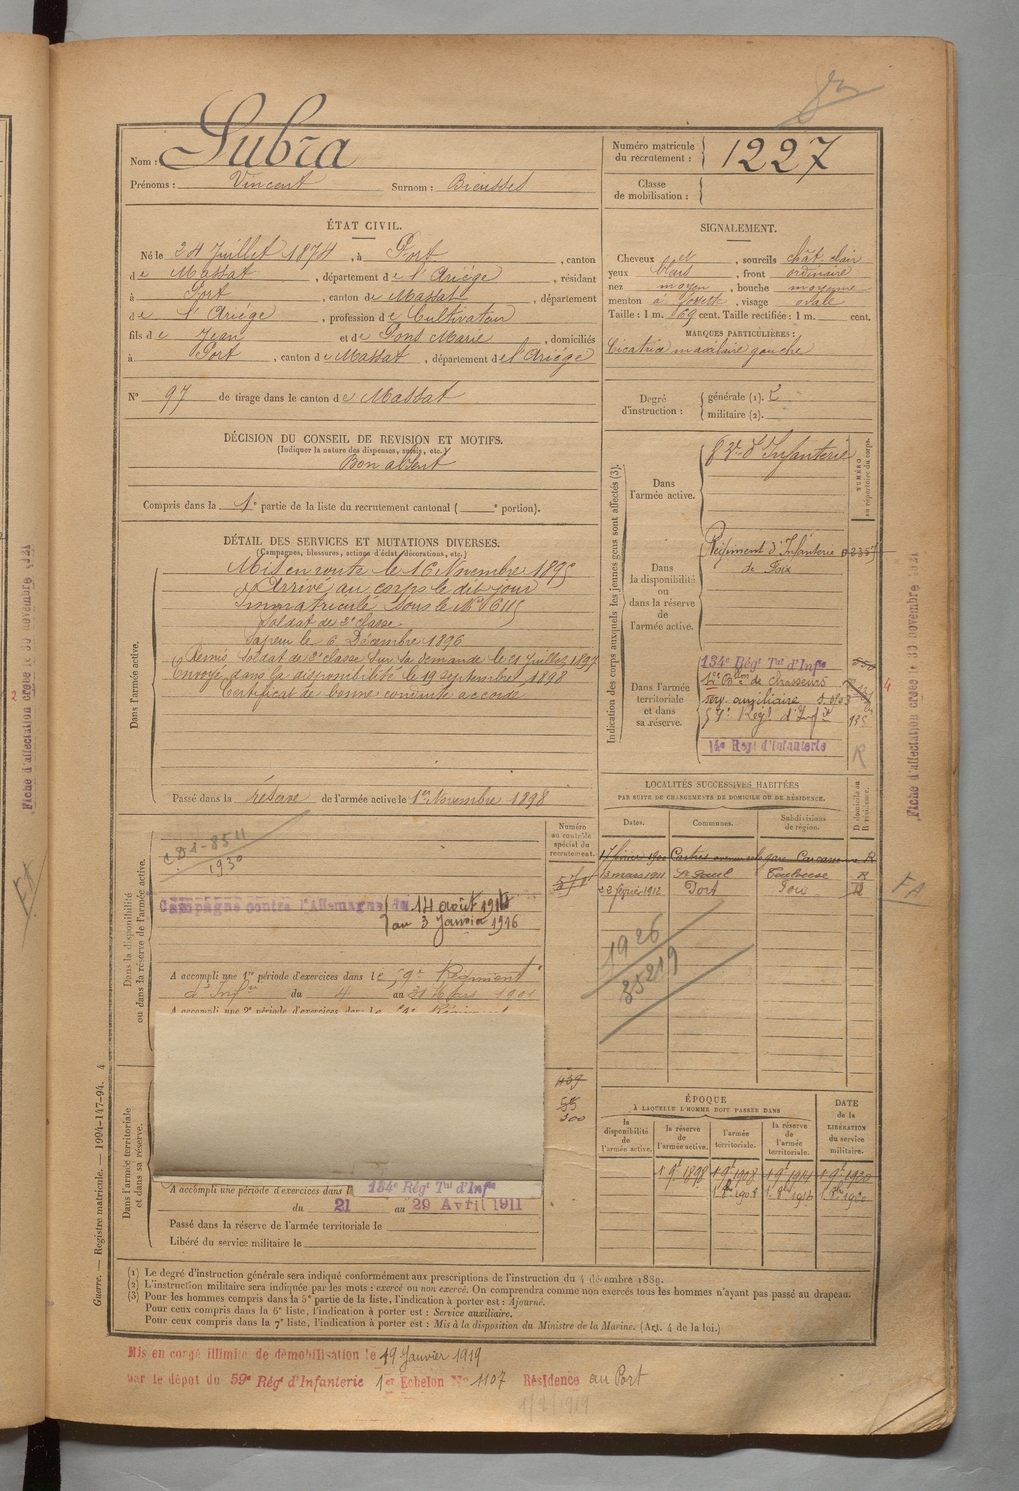 Nom : Subra
Prénoms : Vincent Surnom : Bieusses
Numéro matricule du recrutement : 1227
Classe de mobilisation :
ÉTAT CIVIL.
Né le 24 Juillet 1874, à Port, canton
de Massat, département de l'Ariége, résidant
à Port, canton de Massat, département
de l'Ariége, profession de Cultivateur
fils de Jean et de Pons Marie, domiciliés
à Port, canton de Massat, département de l'Ariége
N° 97 de tirage dans le canton de Massat
SIGNALEMENT.
Cheveux et, sourcils chât. clair
yeux bleus, front ordinaire
nez moyen, bouche moyenne
menton à fossette, visage ovale
Taille : 1 m. 69 cent. Taille rectifiée : 1 m. cent.
MARQUES PARTICULIÈRES :
Cicatrice maxilaire gauche
Degré d'instruction : générale (1). 2
militaire (2).
DÉCISION DU CONSEIL DE REVISION ET MOTIFS.
(Indiquer la nature des dispenses, sursis, etc.)
Bon absent
Compris dans la 1e partie de la liste du recrutement cantonal ( e portion).
DÉTAIL DES SERVICES ET MUTATIONS DIVERSES.
(Campagnes, blessures, actions d'éclat, décorations, etc.)
Dans l'armée active.
Mis en route le 16 Novembre 1895
Arrivé au corps le dit jour
Immatriculé sous le N°
Soldat de 2e classe
Sapeur le 6 Décembre 1896
Remis soldat de 2e classe sur sa demande le 21 Juillet 1897
Envoyé dans la disponibilité le 19 septembre 1898
Certificat de bonne conduite accordé
Passé dans la réserve de l'armée active le 1er Novembre 1898
Indication des corps auxquels les jeunes gens sont affectés (3).
NUMÉRO au répertoire du corps.
Dans l'armée active.
d'Infanterie
Dans la disponibilité ou dans la réserve de l'armée active.
Régiment d'Infanterie
de Foix
Dans l'armée territoriale et dans sa réserve.
134e Régt Tal d'Infie
Bon de Chasseurs
serv. auxiliaire
Régt d'Inf
135
14e Régt d'Infanterie
R
LOCALITÉS SUCCESSIVES HABITÉES
PAR SUITE DE CHANGEMENTS DE DOMICILE OU DE RÉSIDENCE.
Dates. Communes. Subdivisions de région. D domicile ou R résidence.
17 février 1900 Castres avenue de la gare Carcassonne R
13 mars 1911 Toulouse R
22 février 1912 Port Foix R
1926
35219
Dans la disponibilité ou dans la réserve de l'armée active.
Numéro au contrôle spécial du recrutement.
1930
Campagne contre l'Allemagne du 14 août 1914
au 3 Janvier 1916
A accompli une 1re période d'exercices dans le 59e Régiment
d'Infrie du 4 au 31 Mars 1901
A accompli une 2e période d'exercices dans le
Dans l'armée territoriale et dans sa réserve.
A accompli une période d'exercices dans l 134e Régt Tal d'Infie
du 21 au 29 Avril 1911
Passé dans la réserve de l'armée territoriale le
Libéré du service militaire le
ÉPOQUE
À LAQUELLE L'HOMME DOIT PASSER DANS
la disponibilité de l'armée active. la réserve de l'armée active. l'armée territoriale. la réserve de l'armée territoriale. DATE de la LIBÉRATION du service militaire.
1 9e 1898 1 9e 1908 1 9e 1914 1 9e 1920
(1) Le degré d'instruction générale sera indiqué conformément aux prescriptions de l'instruction du 4 décembre 1889.
(2) L'instruction militaire sera indiquée par les mots : exercé ou non exercé. On comprendra comme non exercés tous les hommes n'ayant pas passé au drapeau.
(3) Pour les hommes compris dans la 5e partie de la liste, l'indication à porter est : Ajourné.
Pour ceux compris dans la 6e liste, l'indication à porter est : Service auxiliaire.
Pour ceux compris dans la 7e liste, l'indication à porter est : Mis à la disposition du Ministre de la Marine. (Art. 4 de la loi.)
Mis en congé illimité de démobilisation le 19 Janvier 1919
par le dépôt du 59e Régt d'Infanterie 1er Echelon N° 1107 Résidence au Port
Guerre. — Registre matricule. — 1994-147-94. 4
Fiche d'affectation créée le 30 novembre 1921
FA